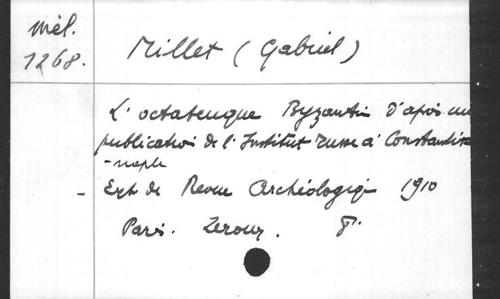 Mél.
1268.
Millet (Gabriel)
L'octateuque Byzantin d'après une
publication de l'Institut russe à Constanti-
-nople
- Ext de Revue Archéologiq 1910
Paris. Leroux. 8°.